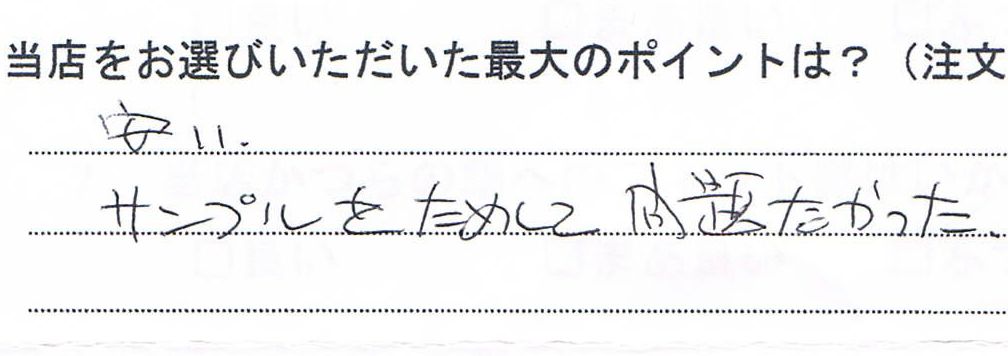 当店をお選びいただいた最大のポイントは？（注文
安い.
サンプルをためして問題なかった.